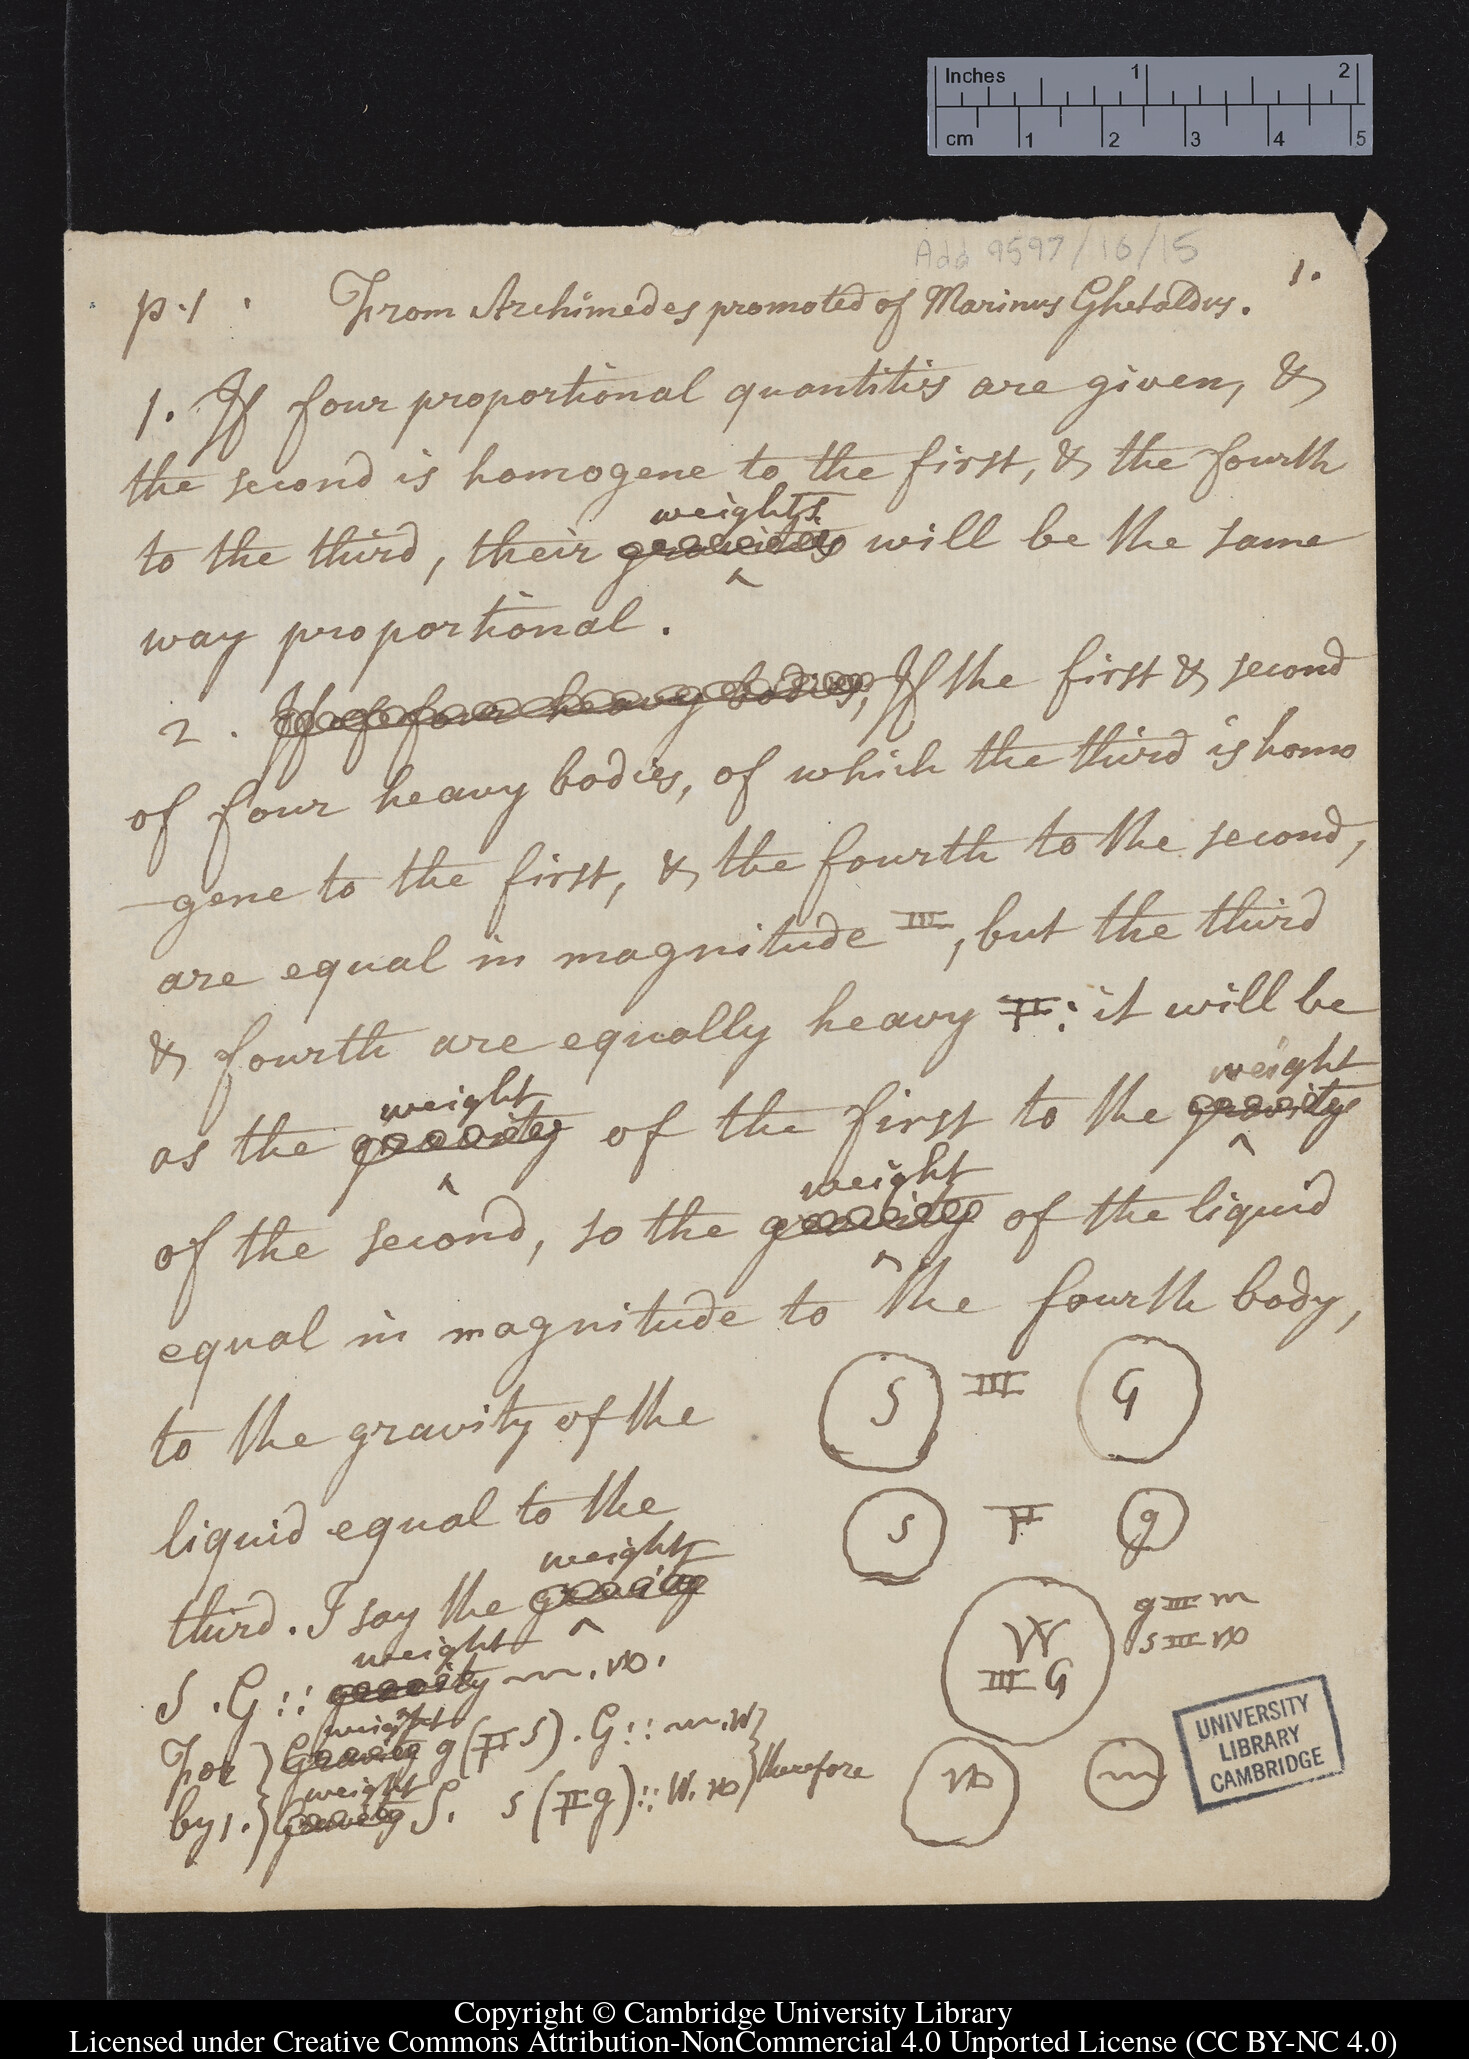 Inches 1 2
cm 1 2 3 4 5
Add 9597/16/15
1.
p. 1. From Archimedes promoted of Marinus Ghetaldus.
1. If four proportional quantities are given, &
the second is homogene to the first, & the fourth
weights.
to the third, their gravitys will be the same
way proportional.
2. If of four heavy bodies, If the first & second
of four heavy bodies, of which the third is homo
-gene to the first, & the fourth to the second,
are equal in magnitude III, but the third
& fourth are equally heavy : it will be
weight weight
as the gravity of the first to the gravity
weight
of the second, so the gravity of the liquid
equal in magnitude to the fourth body,
to the gravity of the
liquid equal to the
weight
third. I say the gravity
weight
S . G :: gravity m. w.
weight
For } Gravity g ( S). G :: m. W }
weight
by 1. } Gravity S. s ( g) :: W. w } therefore
S III G
s g
W
III G
g III m
s III w
w m
UNIVERSITY
LIBRARY
CAMBRIDGE
Copyright © Cambridge University Library
Licensed under Creative Commons Attribution-NonCommercial 4.0 Unported License (CC BY-NC 4.0)